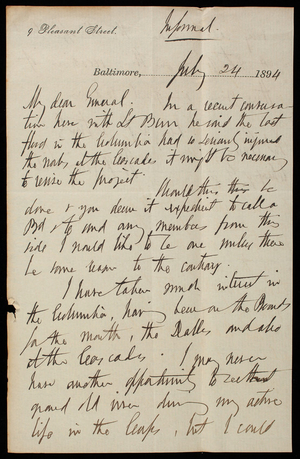 9 Pleasant Street.
Informal.
Baltimore, July 24 1894
My dear General. In a recent conversa-
tion here with Lt Burr he said the last
flood in the Columbia had so seriously injured
the works at the Cascades it might be necessary
to revise the project.
Should this be
done & you deem it expedient to call a
Bd & to send any members from this
side I would like to be one unless there
be some reason to the contrary.
I have taken much interest in
the Columbia, having been on the Boards
for the mouth, the Dalles and also
at the Cascades. I may never
have another opportunity to see that
grand old river during my active
life in the Corps, but I could